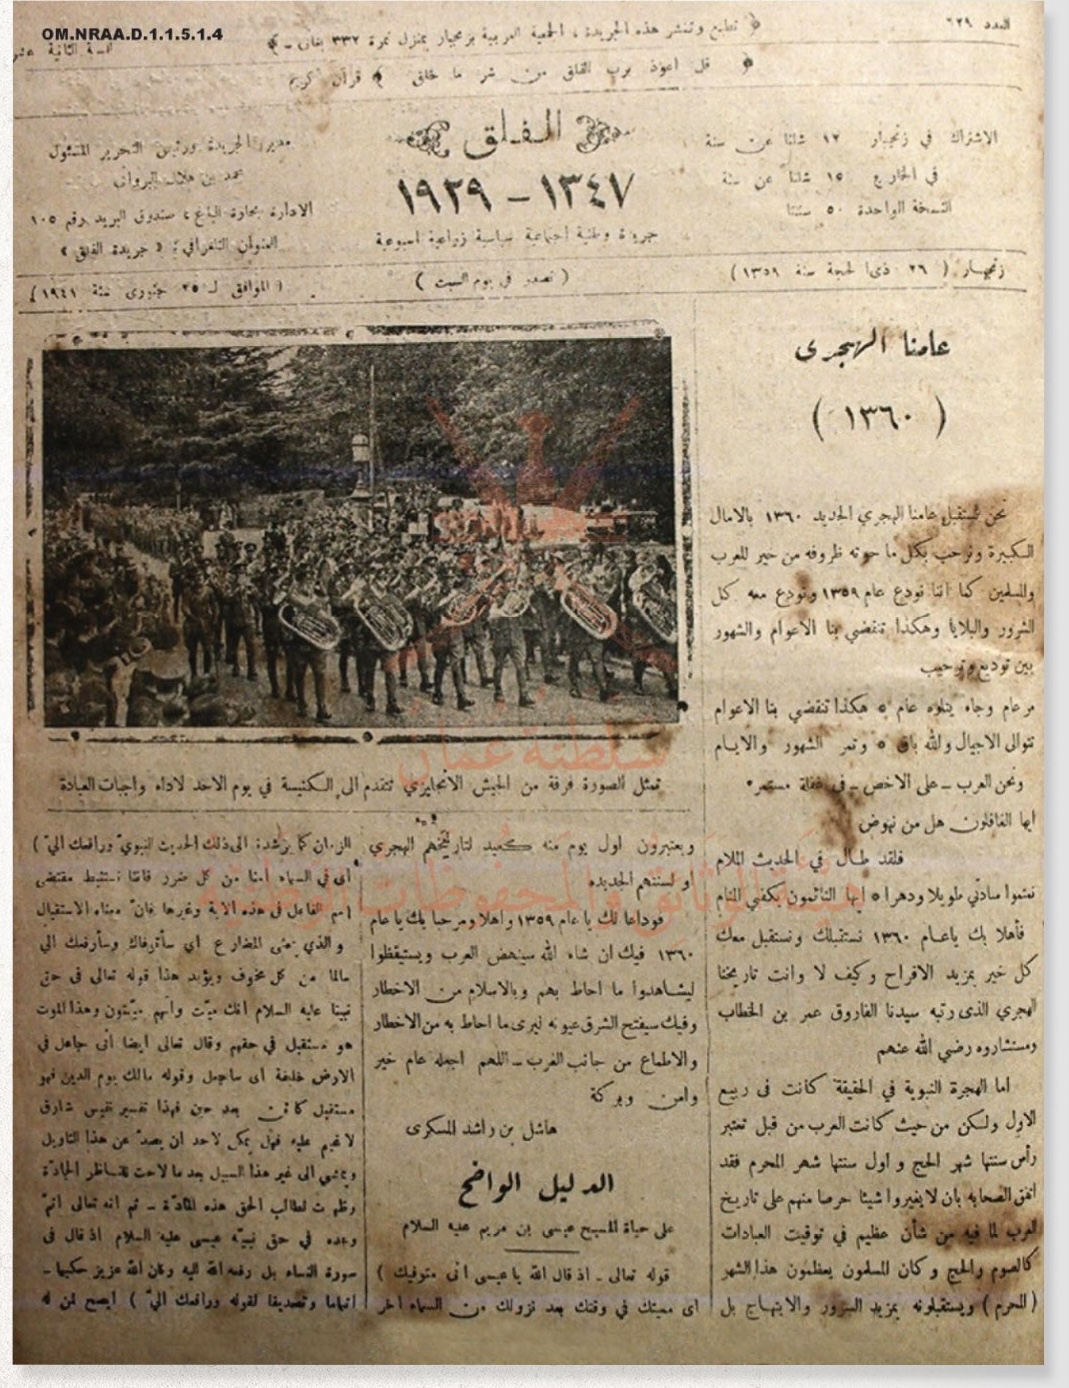 OM.NRAA.D.1.1.5.1.4
العدد ٦٢٩
﴿ تطبع وتنشر هذه الجريدة ، الجمعية العربية بزنجبار بمنزل نمرة ٣٣٢
السنة الثانية عشر
﴿ قل اعوذ برب الفلق من شر ما خلق ﴾ قرآن كريم
الاشتراك في زنجبار ١٢ شلنا عن سنة
في الخارج ١٥ شلنا عن سنة
النسخة الواحدة ٥٠ سنتا
الفلق
١٣٤٧ - ١٩٢٩
جريدة وطنية اجتماعية سياسية زراعية اسبوعية
مدير الجريدة ورئيس التحرير المسئول
بن هلال البرواني
الادارة بحارة البلغ ، صندوق البريد رقم ١٠٥
العنوان التلغرافي : « جريدة الفلق »
زنجبار ( ٢٦ ذي الحجة سنة ١٣٥٩ )
( تصدر في يوم السبت )
( الموافق لـ ٢٥ جنوري سنة ١٩٤١ )
عامنا الهجرى
( ١٣٦٠ )
نحن نستقبل عامنا الهجري الجديد ١٣٦٠ بالامال
الكبيرة ونرحب بكل ما حوته ظروفه من خير للعرب
والمسلمين كما اننا نودع عام ١٣٥٩ ونودع معه كل
الشرور والبلايا وهكذا تنقضي بنا الاعوام والشهور
بين توديع وترحيب
مر عام وجاء يتلوه عام ٥ هكذا تنقضي بنا الاعوام
تتوالى الاجيال والله باق ٥ وتمر الشهور والايام
ونحن العرب ــ على الاخص ــ في غفلة مستمر •
ايها الغافلون هل من نهوض
فلقد طال في الحديث الملام
نمتموا سادتي طويلا ودهرا ٥ ايها النائمون يكفي المنام
فأهلا بك ياعام ١٣٦٠ نستقبلك ونستقبل معك
كل خير بمزيد الافراح وكيف لا وانت تاريخنا
الهجري الذى رتبه سيدنا الفاروق عمر بن الخطاب
ومستشاروه رضي الله عنهم
اما الهجرة النبوية في الحقيقة كانت فى ربيع
الاول ولكن من حيث كانت العرب من قبل تعتبر
رأس سنتها شهر الحج و اول سنتها شهر المحرم فقد
اتفق الصحابه بان لا يغيروا شيئا حرصا منهم على تاريخ
العرب لما فيه من شأن عظيم في توقيت العبادات
كالصوم والحج وكان المسلمون يعظمون هذا الشهر
( المحرم ) ويستقبلونه بمزيد السرور والابتهاج بل
تمثل الصورة فرقة من الجيش الانجليزي تتقدم الى الكنيسة في يوم الاحد لاداء واجبات العبادة
ويعتبرون اول يوم منه كعيد لتاريخهم الهجري
او لسنتهم الجديده
فوداعا لك يا عام ١٣٥٩ واهلا ومرحبا بك يا عام
١٣٦٠ فيك ان شاء الله سينهض العرب ويستيقظوا
ليشاهدوا ما احاط بهم وبالاسلام من الاخطار
وفيك سيفتح الشرق عيونه ليرى ما احاط به من الاخطار
والاطماع من جانب الغرب ــ اللهم اجعله عام خير
وامن وبركة
هاشل بن راشد المسكرى
الدليل الواضح
على حياة المسيح عيسى بن مريم عليه السلام
قوله تعالى ـ اذ قال الله يا عيسى انى متوفيك )
اى مميتك في وقتك بعد نزولك من السماء آخر
الزمان كما يرشد الى ذلك الحديث النبوي ورافعك الي )
أى في السماء آمنا من كل ضرر فاننا نستنبط مقتضى
اسم الفاعل في هذه الآية وغيرها فان معناه الاستقبال
والذي بمعنى المضارع اي سأتوفاك وسأرفعك الي
سالما من كل مخوف ويؤيد هذا قوله تعالى فى حق
نبينا عليه السلام انك ميت وانهم ميتون وهذا الموت
هو مستقبل في حقهم وقال تعالى ايضا انى جاعل في
الارض خليفة اى ساجعل وقوله مالك يوم الدين فهو
مستقبل كائن بعد حين فهذا تفسير نفيس شارق
لا غيم عليه فهل يمكن لاحد ان يصد عن هذا التاويل
ويمضي الى غير هذا السبيل بعد ما لاحت للناظر الجادة
وظهرت لطالب الحق هذه المادة ــ ثم انه تعالى اتم
وعده في حق نبيه عيسى عليه السلام اذ قال فى
سورة النساء بل رفعه الله اليه وكان الله عزيز حكيما ــ
اتماما وتصديقا لقوله ورافعك الي ) ايصح لمن له
سلطنة عمان
هيئة الوثائق والمحفوظات الوطنية